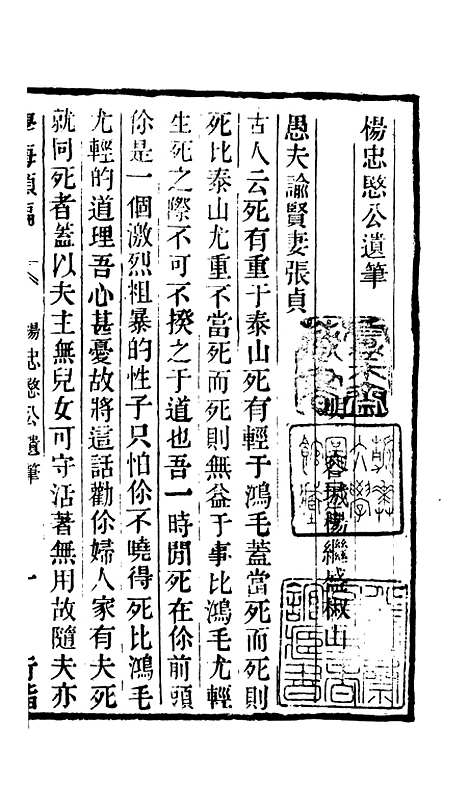 楊忠愍公遺筆
明 容城楊繼盛椒山
愚夫諭賢妻張貞
古人云死有重于泰山死有輕于鴻毛蓋當死而死則
死比泰山尤重不當死而死則無益于事比鴻毛尤輕
生死之際不可不揆之于道也吾一時閒死在你前頭
你是一個激烈粗暴的性子只怕你不曉得死比鴻毛
尤輕的道理吾心甚憂故將這話勸你婦人家有夫死
就同死者蓋以夫主無兒女可守活著無用故隨夫亦
學海類編
楊忠愍公遺筆
一
行詣